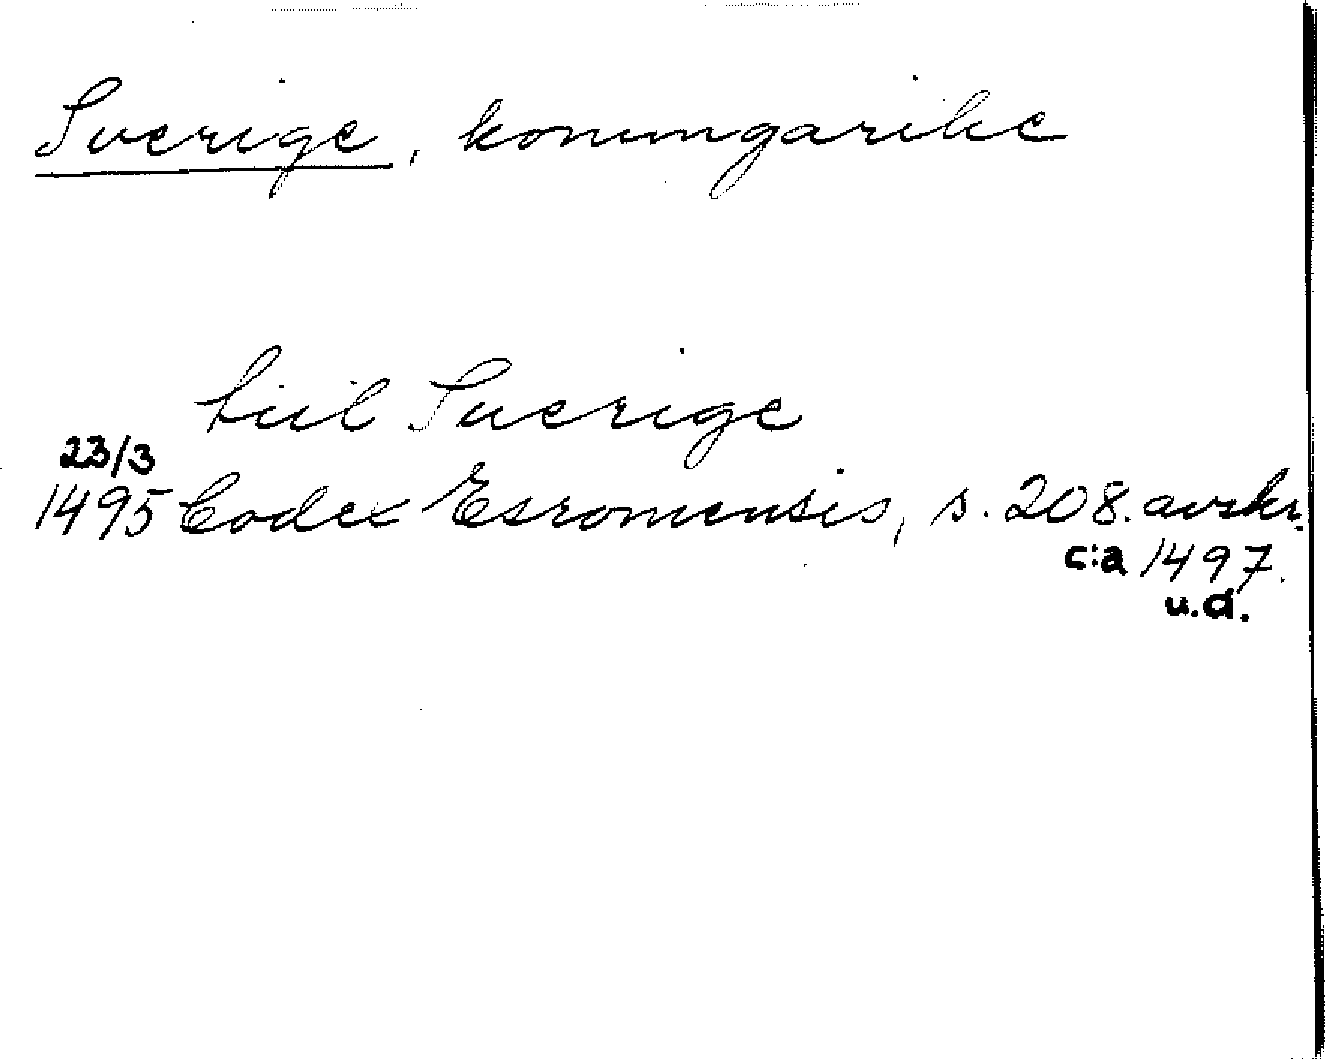 Sverige, konungarike
tiil Suerige
23/3
1495 Codex Esromensis, s. 208. avskr.
c:a 1497.
u.d.